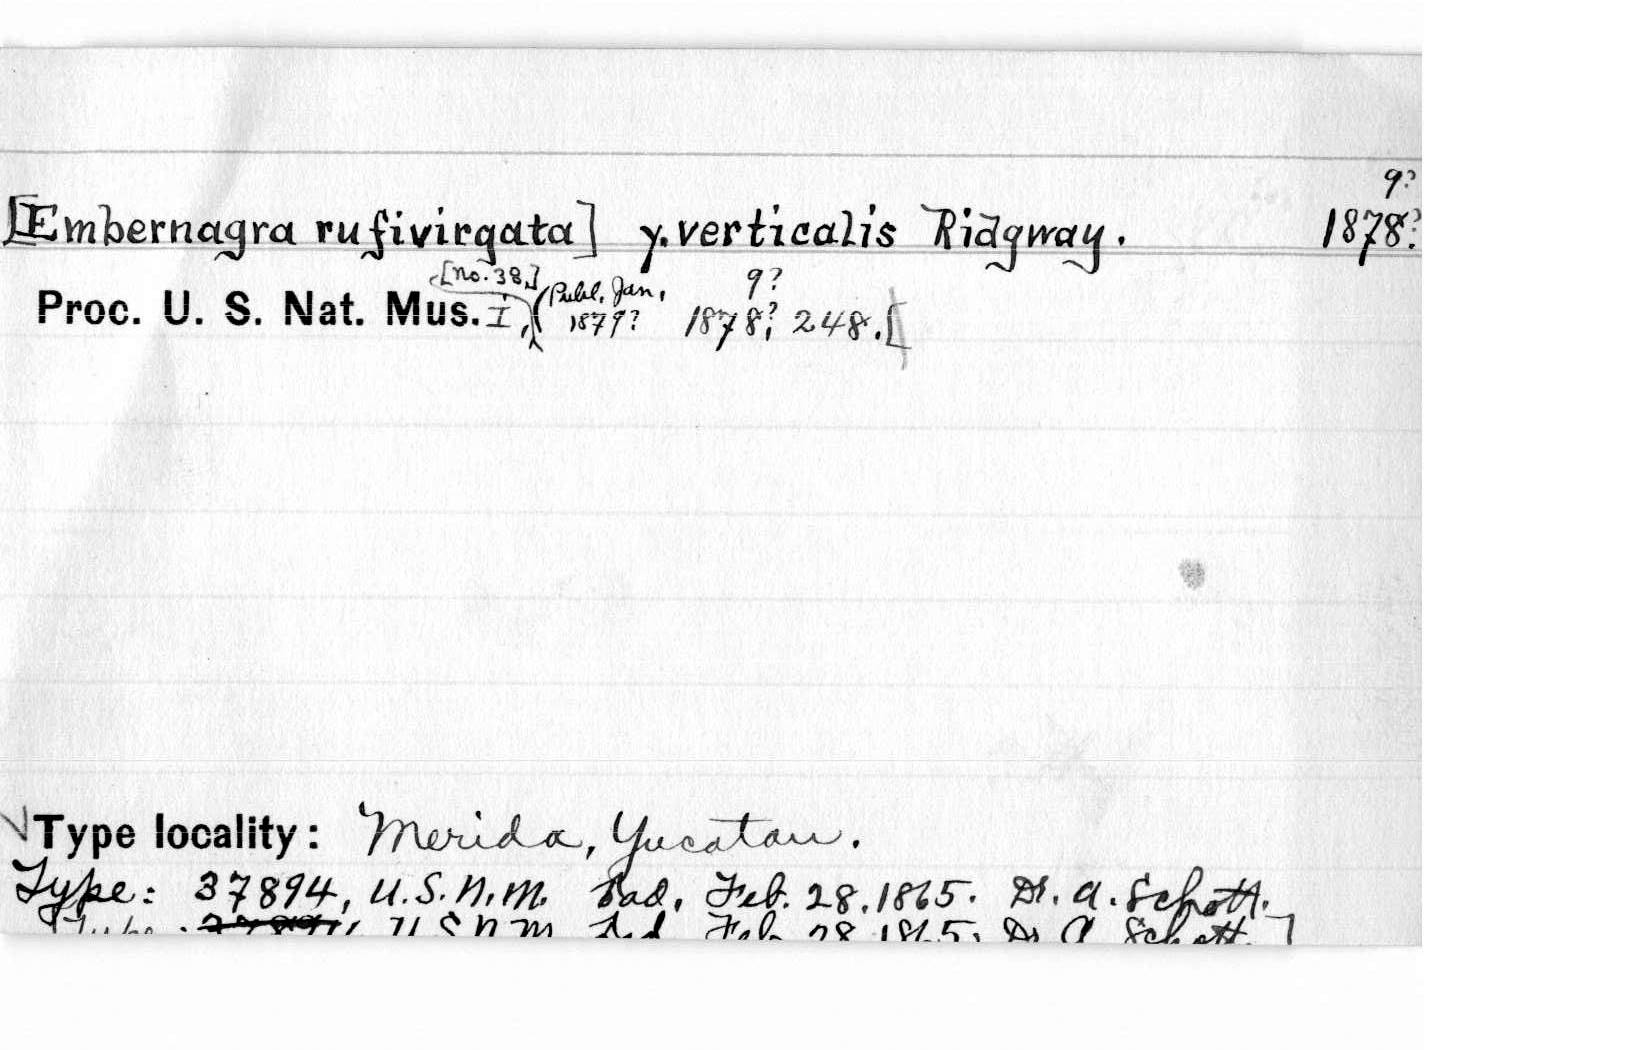 9?
[Embernagra rufivirgata] γ. verticalis Ridgway. 1878?
[no. 38.] (Publ. Jan. 9?
Proc. U. S. Nat. Mus. I, 1879? 1878? 248. [
Type locality: Merida, Yucatan.
Type: 37894, U.S.N.M. ad. Feb. 28, 1865. Dr. A. Schott.
Type: 37894, U S N M ad Feb 28 1865, Dr A Schott. ]